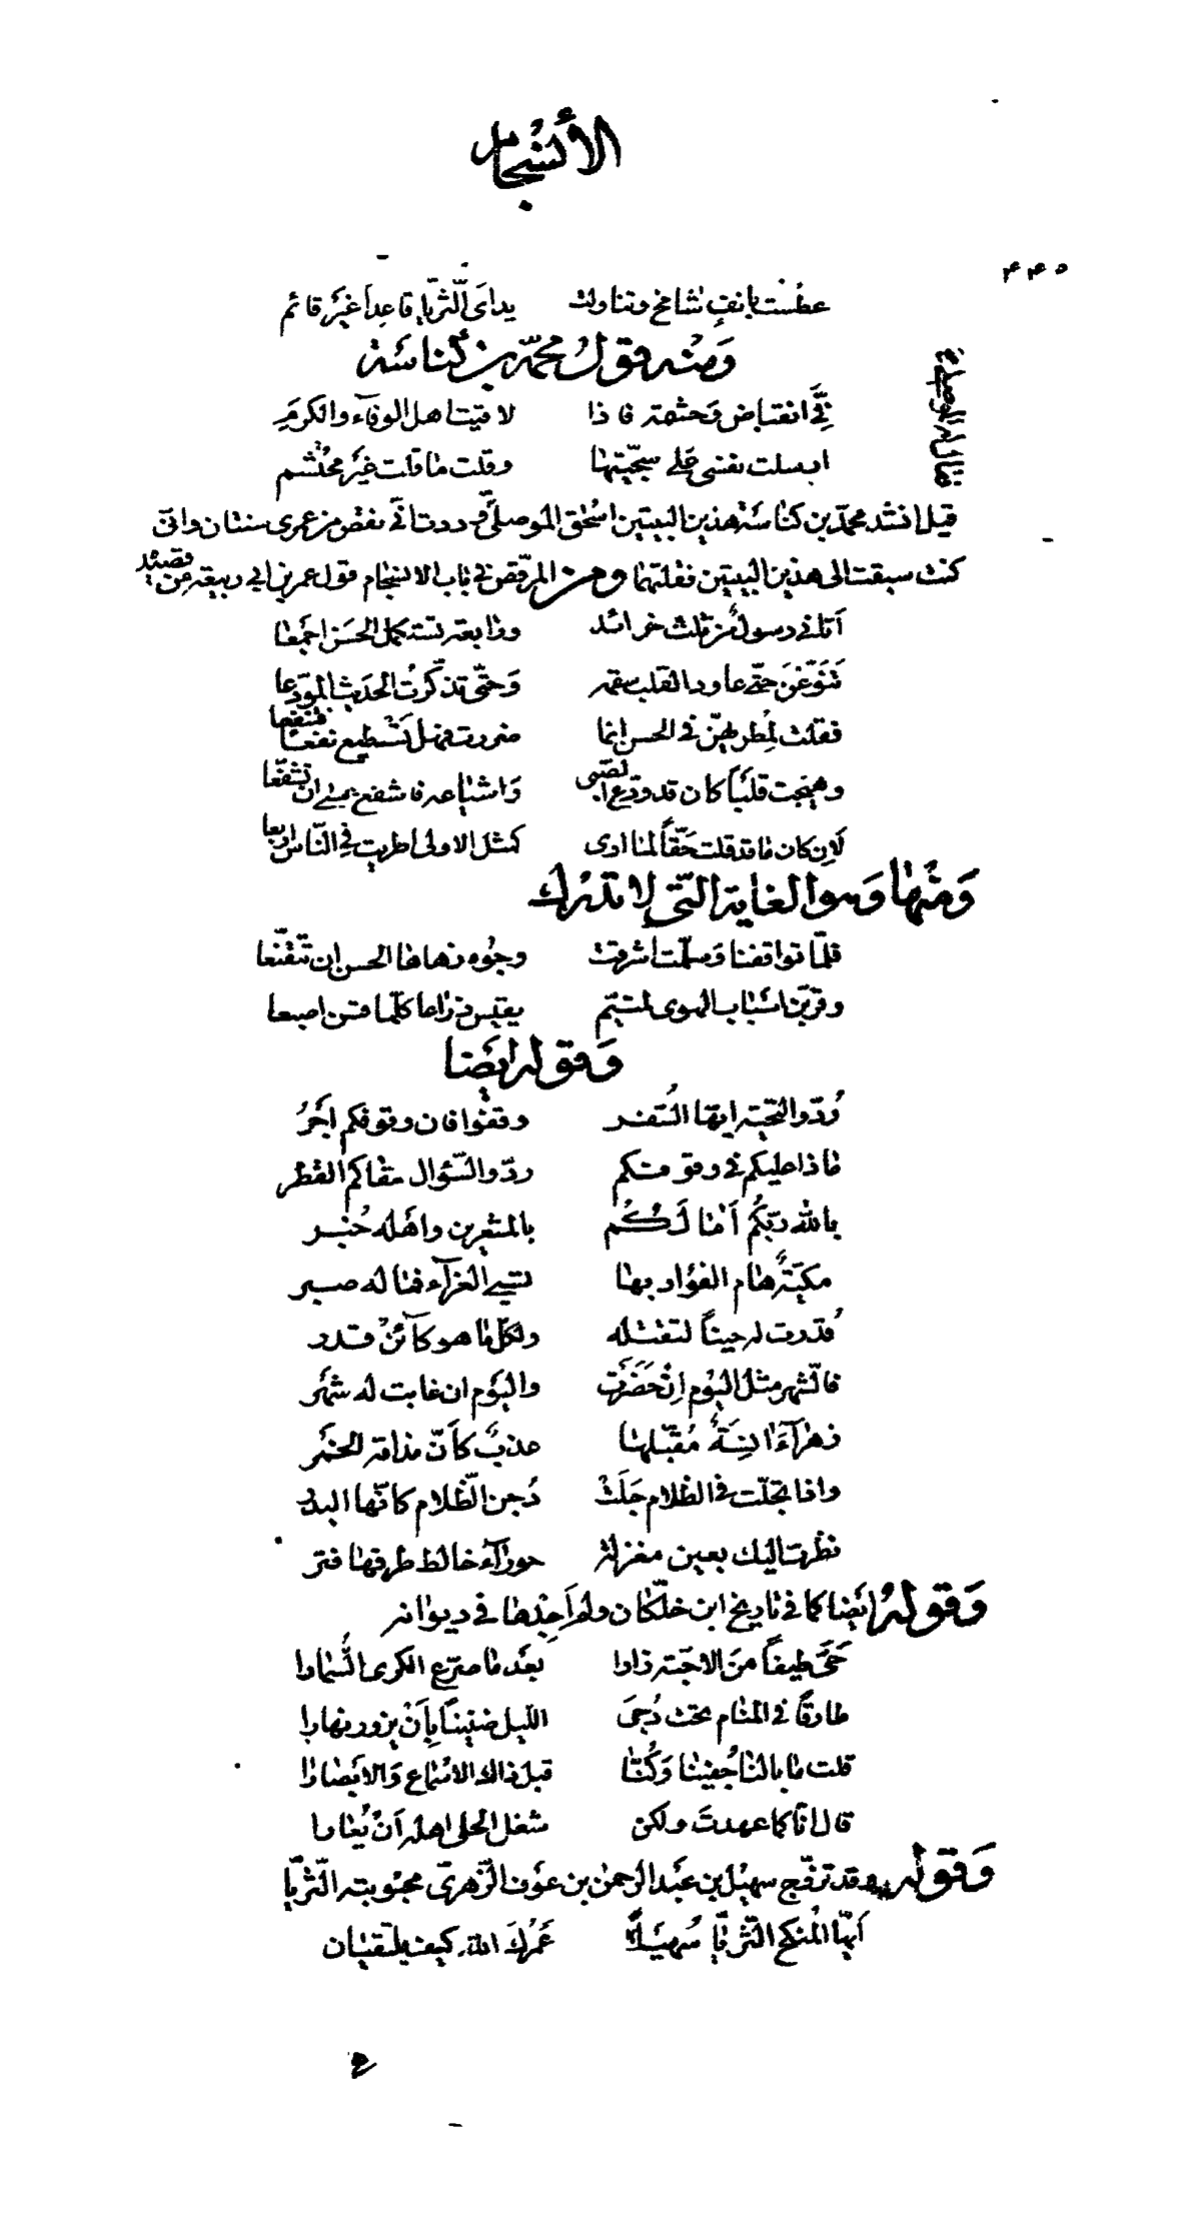 الأنسجام
٤٤٥
عطست بانفٍ شامخ وتناولت يداىَ الثّريّا قاعِداً غيرَ قائم
وَمنه قولُ محمّد بن كناسَة
فِيَّ انقباض وَحشمة فاذا لاقيت اهل الوفآء والكرمِ
ارسلت نفسى عَلى سجيّتها وقلت ما قلت غيرَ محُتشم
قيل انشد محمّد بن كناسَة هذين البيتين اسْحٰق الموصلىّ فقال له الموصلى
وددت انّه نقص من عمرى سنتان وانّى
كنت سبقت الى هذين البيتين فقلتهما ومن المرقّص في باب الانسجام قول عمر بن ابى ربيعة من قصيدة
اَتانى رسول من ثلث خرائد ورابعة تستكمل الحسَن اجمَعا
فقلت لمُطريهنّ فى الحسن انما ضررت فهل تَسْطيع نفعاً فتنفعا
وهيّجت قلبَاً كان قد ودّع الصّبى وَاشياعه فاشفع عسٰى ان تشفّعا
لَاِن كان ما قد قلت حَقّاً لما ارى كمثل الاولى اطريت فِى النّاس اربعا
وَمنْها وَهو الغاية الّتى لا تدْرك
فلمّا تواقفنا وَسلّمت اشرقت وجُوه زهاها الحسن ان تَتَقنّعا
وقرّبن اسَباب الهوى لمتيّم يقيس ذراعا كلّما قسن اصبعا
وَقوله ايضَا
رُدّوا التحيّة ايّها السَّفر وقفُوا فان وقوفكم اَجْرُ
ماذا عليكم فى وقوفكم ردّوا السّؤال سقاكم القطر
بالله ربّكُم اَمٰا لَكُم بالمشعرين واهله خُبر
مكيّةٌ هام الفؤاد بها نسى العزآء فما له صبر
قُدرت له حيناً لتقتله ولكلّ ما هو كآئنٌ قدر
فالشّهر مثل اليوْم اِنْ حَضَرَت واليوَم ان غابت له شهَر
زهرآء انِسَةٌ مُقبّلها عذبٌ كاَنّ مذاقه الخمَر
واذا تجلّت فى الظلام جَلَتْ دُجن الظّلام كانّها البدر
نظرت اليك بعين مغزلة حورآء خالط طرفها فتر
وَقولهُ ايَضا كما فى تاريخ ابن خلّكان ولم اَجِدْها فى ديوانه
حَىِّ طيفاً منَ الاحبّة زارا بعَد ما صرّع الكرى السُّمارا
طارقاً فى المنام تحت دُجىَ الليل ضنيناً بِاَنْ يزور نهارا
قلت ما بالنا جُفينا وَكُنّا قبل ذاك الاسَماع وَالابَصارا
قال انّا كما عهدتَ ولكن شغل الحلى اهله اَنْ يُعارا
وَقوله وقد تزوّج سهيَل بن عبَد الرّحمٰن بن عوَف الزّهرىّ محبُوبته الثّريّا
اَيّها المُنكح الثّريّا سُهيَلاً عَمْرك الله كيف يلتقيان